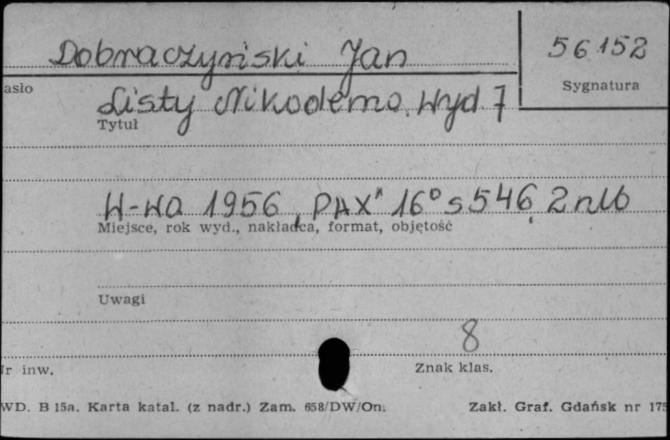 Dobraczyński Jan
56152
asło
Sygnatura
Listy Nikodema. Wyd 7
Tytuł
W-wa 1956, PAX" 16° s 546, 2 nlb
Miejsce, rok wyd., nakładca, format, objętość
Uwagi
8
r inw.
Znak klas.
WD. B 15a. Karta katal. (z nadr.) Zam. 658/DW/On.
Zakł. Graf. Gdańsk nr 175